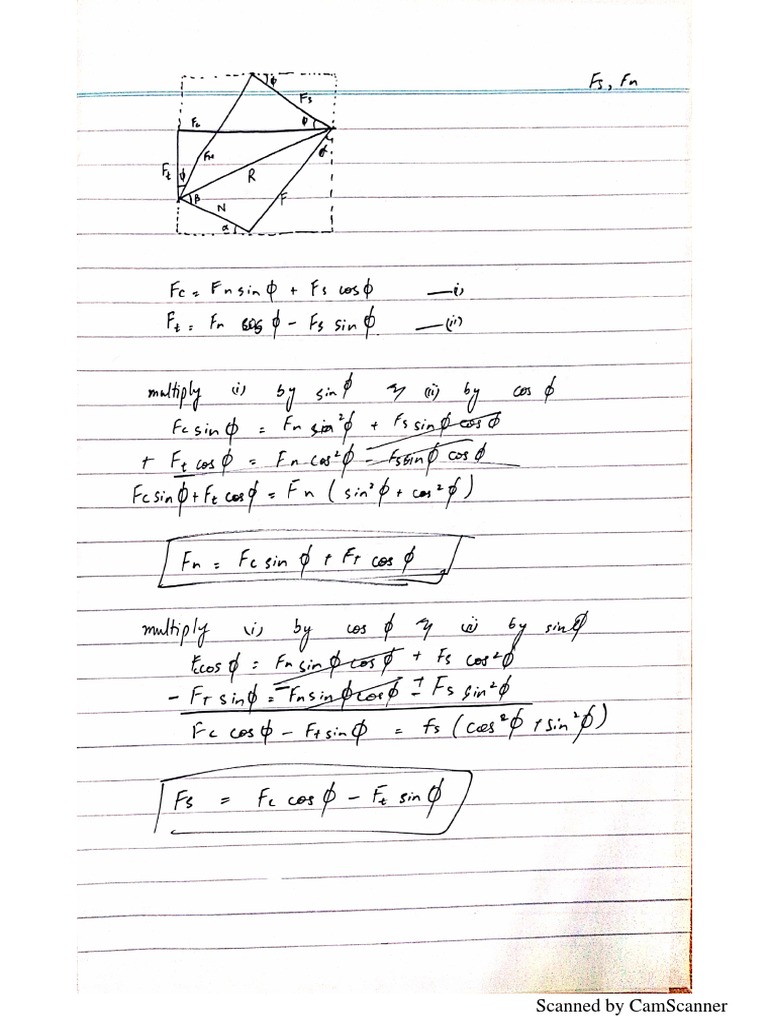 Fs, Fn
ϕ
Fs
Fc
ϕ
Fn
α
Ft
ϕ
R
β
F
N
α
Fc = Fn sin ϕ + Fs cos ϕ — i)
Ft = Fn cos ϕ − Fs sin ϕ — (ii)
multiply (i) by sin ϕ & (ii) by cos ϕ
Fc sin ϕ = Fn sin²ϕ + Fs sin ϕ cos ϕ
+ Ft cos ϕ = Fn cos²ϕ − Fs sin ϕ cos ϕ
Fc sin ϕ + Ft cos ϕ = Fn ( sin²ϕ + cos²ϕ )
Fn = Fc sin ϕ + FT cos ϕ
multiply (i) by cos ϕ & (ii) by sin ϕ
Fc cos ϕ = Fn sin ϕ cos ϕ + Fs cos²ϕ
− FT sin ϕ = − Fn sin ϕ cos ϕ ∓ Fs sin²ϕ
Fc cos ϕ − Ft sin ϕ = fs ( cos²ϕ + sin²ϕ )
Fs = Fc cos ϕ − Ft sin ϕ
Scanned by CamScanner